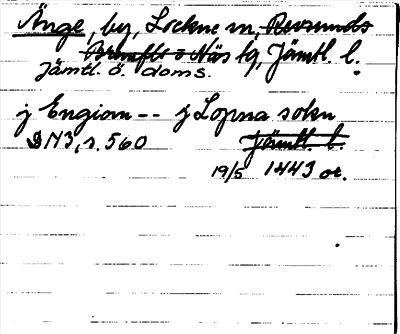 Änge, by, Lockne sn, Revsunds
Brunflo o Näs tg, Jämtl. l.
Jämtl. ö. doms.
j Engiom -- j Lopna sokn
DN3, s. 560 Jämtl. l.
19/5 1443 or.